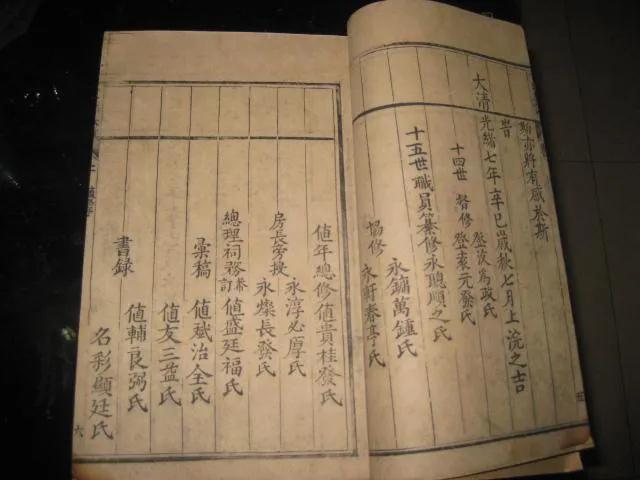 亦將有感於斯
旹
大清光緒七年辛巳歲秋七月上浣之吉
十四世 督修 登
登衮元發氏
十五世 職員纂修 永聰順之氏
永鏞萬鍾氏
協修 永軒春亭氏
值年總修 值貴桂發氏
永淳必厚氏
房長旁搜
永燦長發氏
總理祠務兼訂 值盛廷福氏
彙稿 值斌治全氏
值友三益氏
值輔良弼氏
書録
名彩顯廷氏
六
五